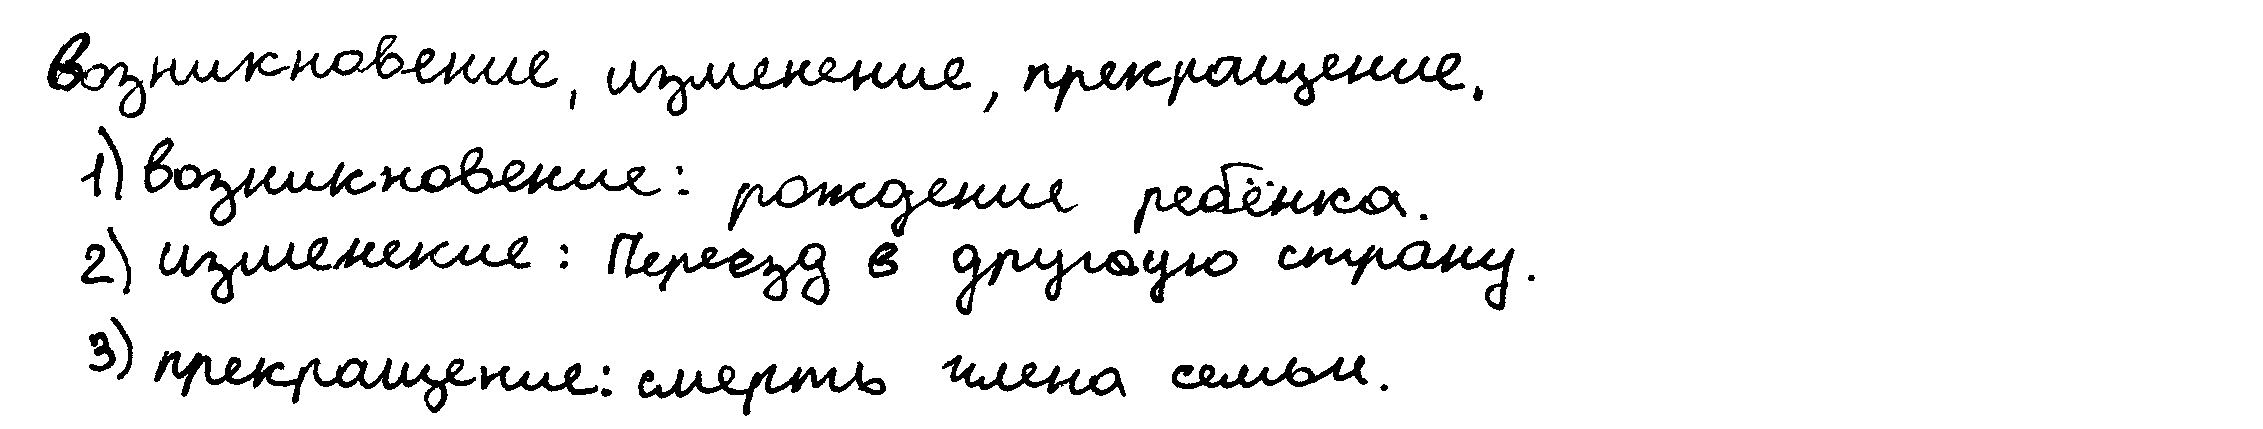 Возникновение, изменение, прекращение.
1) возникновение: рождение ребёнка.
2) изменение: Переезд в другую страну.
3) прекращение: смерть члена семьи.